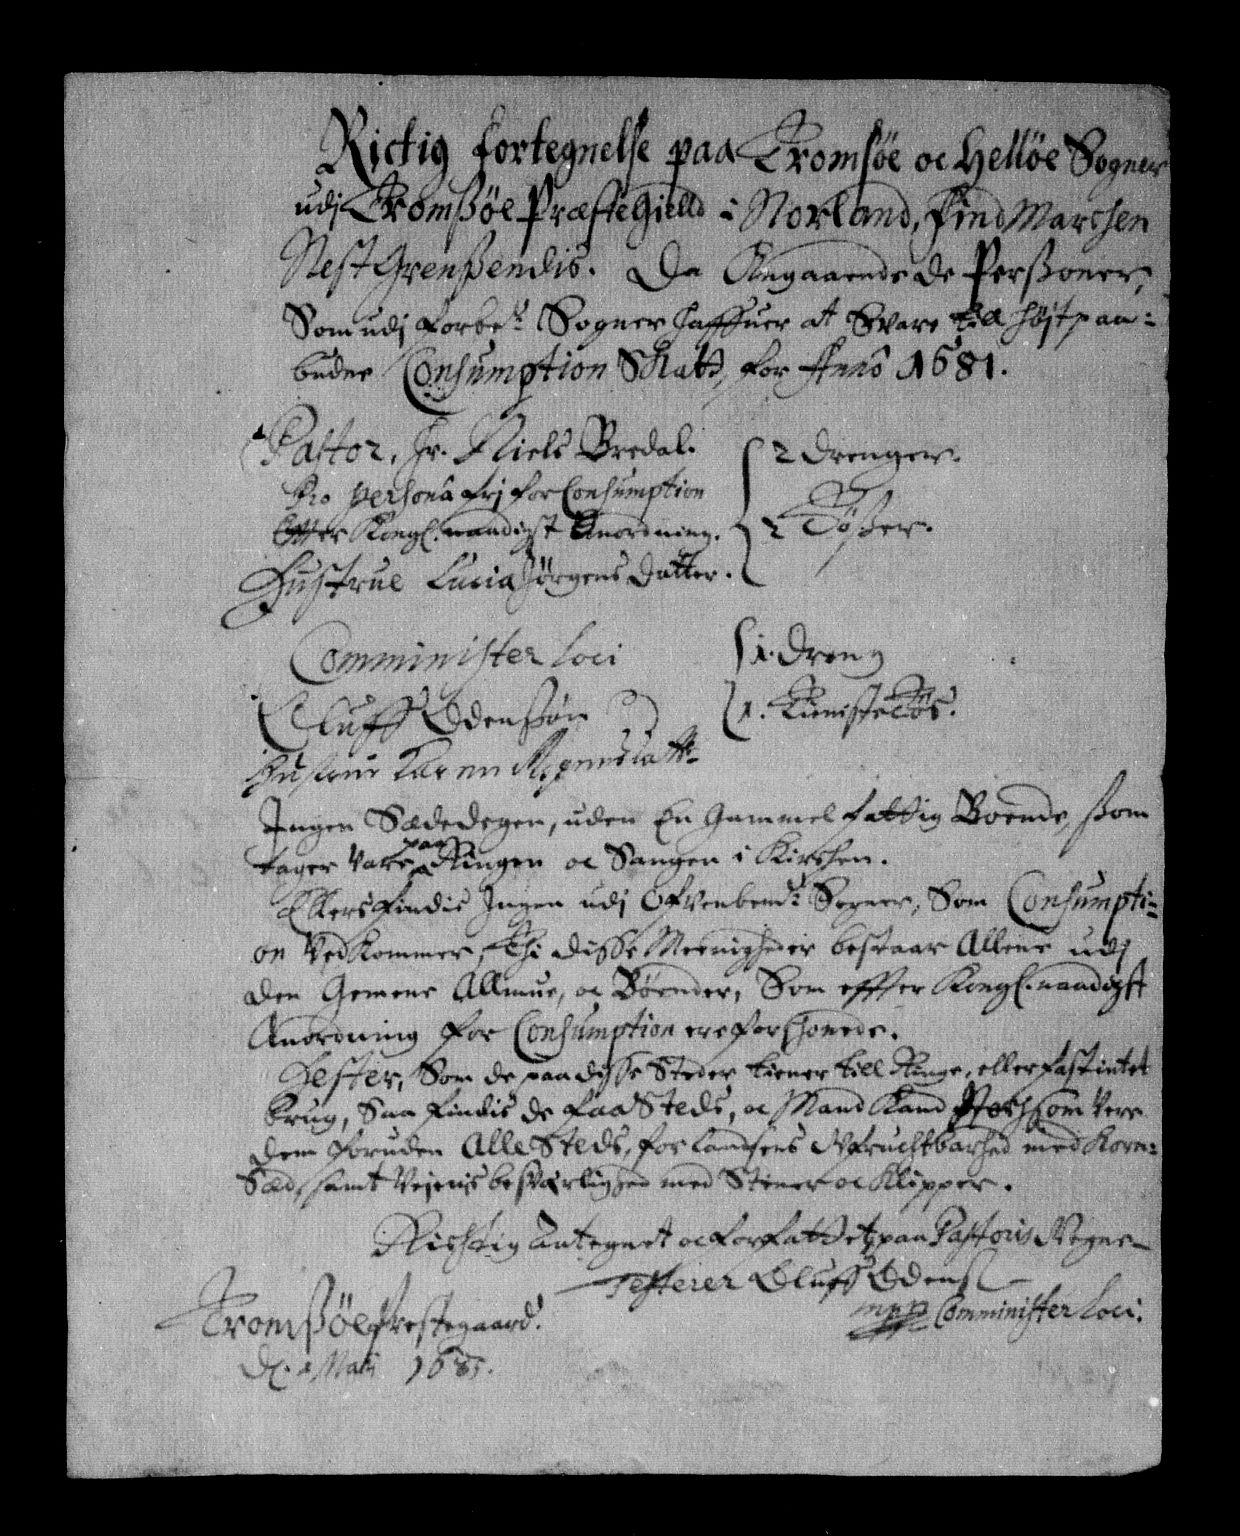 Rictig fortegnelse paa Tromsøe oc Helløe Sogner
udj Tromsøe Præstegield i Norland, Find Marchen
Nest Grentzendis. Da Angaaende de Personer,
Som udj forbe:te Sogner haffuer at Svare till højt paa-
budne Consumption Skatt, for Anno 1681.
Pastor, Hr. Niels Bredal.
Pro persona frj for Consumption
Effter Kongl. naadigst Anordning.
Hustrue Lucia Jørgens datter.
2 drenger.
2 Tøser.
Comminister Loci
Eluff Edensøn
Hustrue Karen datter
1. dreng
1. Tieniste tøs.
Ingen Sædedegen, uden En Gammel fattig Boende, som
tager Vare paa Ringen oc Sangen i Kirchen.
Ellers findis Ingen udj Ofvenbem:te Sogner, Som Consumpti-
on Ved Kommer, thi disse Meenigheder bestaar Allene udj
den Gemene Allmue, oc Bønder, Som effter Kongl. naadigst
Anordning for Consumption ere forschonede.
Hester, Som de paa disse Steder tiener till Ringe, eller fast intet
brug, Saa findis de faa Steds, oc Mand Kand være
dem foruden Alle Steds, for Landsens Ufruchtbarhed med Korn-
Sæd, samt Vejenis besværlighed med Stener oc Klipper.
Richtig Antegnet oc forfattet, paa Pastoris Vegne
Testerer Eluff Edens
mpp Comminister Loci.
Tromsøe Prestegaard.
d. Maii 1681.